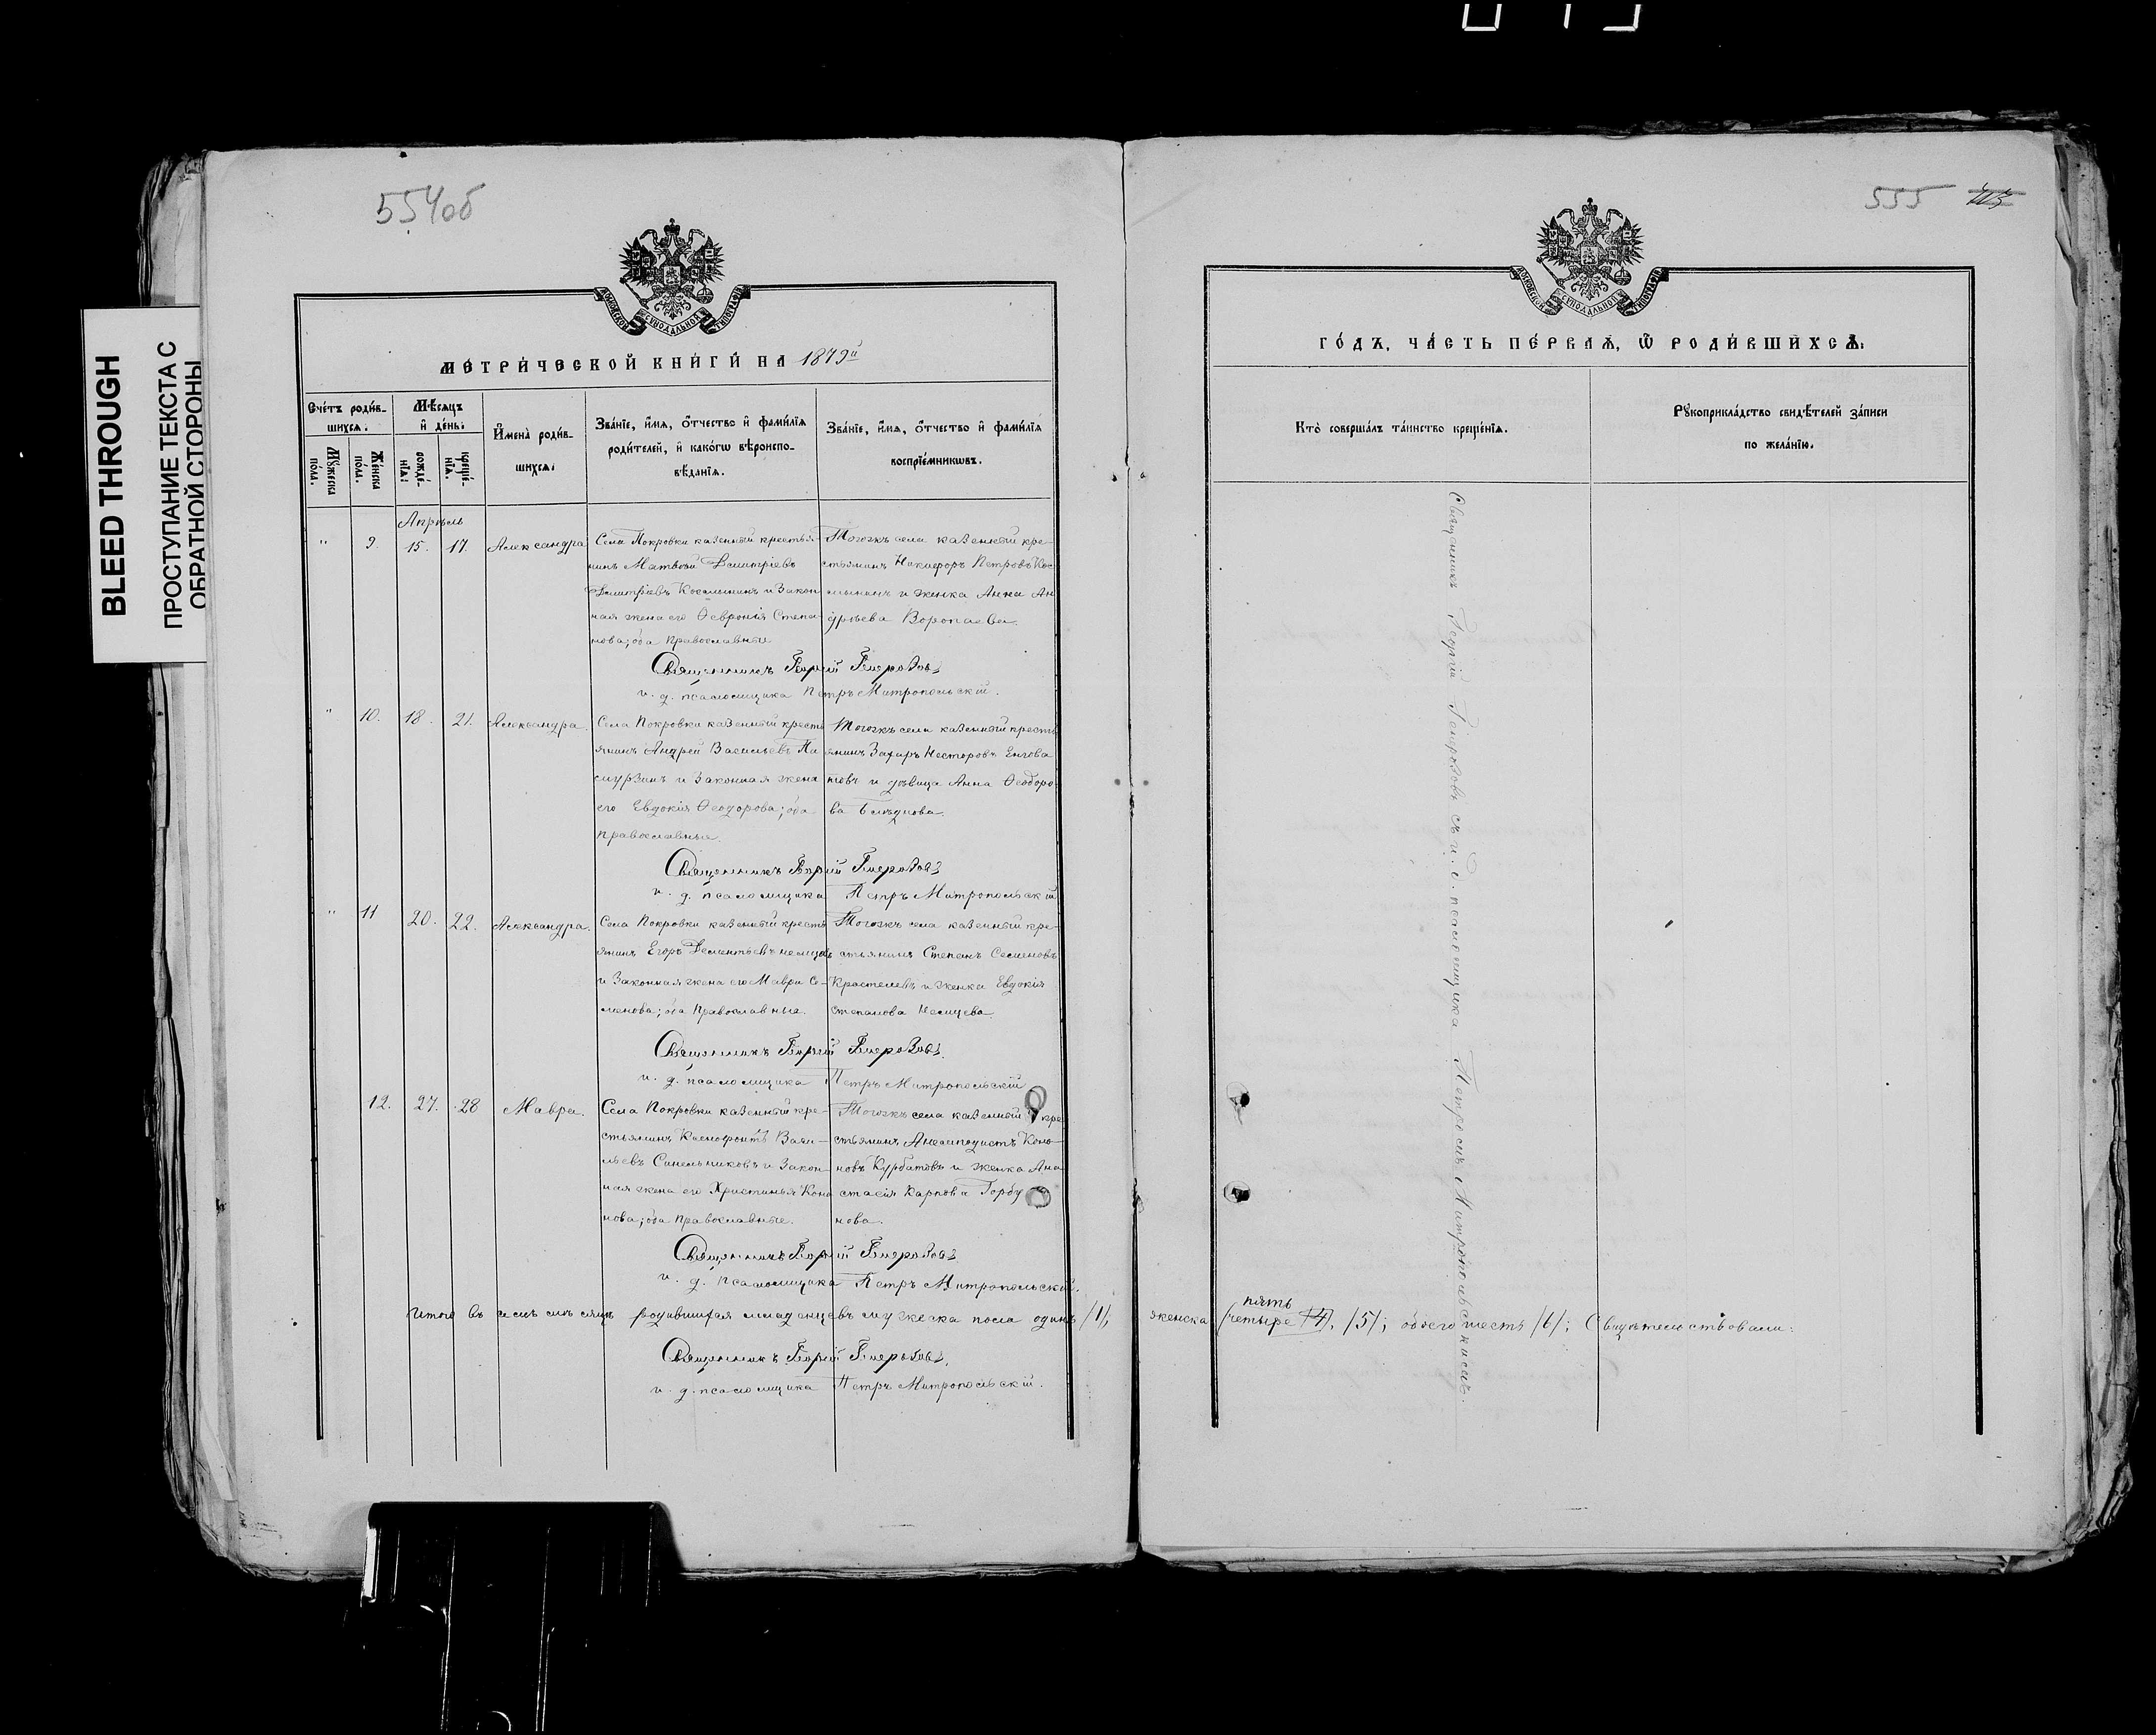 BLEED THROUGH
ПРОСТУПАНИЕ ТЕКСТА С
ОБРАТНОЙ СТОРОНЫ
554об
МОСКОВСКОЙ СѴНОДАЛЬНОЙ ТИПОГРАФІИ
МЕТРИ́ЧЕСКОЙ КНИ́ГИ НА 1879й
Сче́тъ роди́в-
шихся.
Мѣ́сяцъ
и҆ де́нь.
Му́жеска
по́ла.
Же́нска
по́ла.
рожде́-
нїя.
креще́-
нїя.
И҆мена̀ роди́в-
шихся.
Зва́нїе, и҆́мя, ѻ҆́тчество и҆ фами́лїя
роди́телей, и҆ како́гѡ вѣроиспо-
вѣ́данїя.
Зва́нїе, и҆́мя, ѻ҆́тчество и҆ фами́лїя
воспрїе́мникѡвъ.
Апрѣль
" 9. 15. 17. Александра
Села Покровки казенный крестья-
нинъ Матвѣй Дмитріевъ
Дмитріевъ Космынинъ и Закон
ная жена его Ѳевронія Степа-
нова; оба православные
Тогожъ села казенный кре-
стьянинъ Никифоръ Петровъ Кос
мынинъ и женка Анна Ан
дрѣева Воропаева.
Священникъ Георгій
и. д. псаломщика Петръ Митропольскій.
" 10. 18. 21. Александра.
Села Покровки казенный кресть
янинъ Андрей Васильевъ Па
мурзинъ и Законная жена
его Евдокія Ѳеодорова; оба
православные.
Тогожъ села казенный кресть
янинъ Захаръ Несторовъ Енгова
товъ и дѣвица Анна Ѳеодоро
ва Блѣднова.
Священникъ Георгій
и. д. псаломщика Петръ Митропольскій
" 11 20. 22. Александра.
Села Покровки казенный кресть
янинъ Егоръ Дементьевъ Немцовъ
и Законная жена его Мавра Се-
менова; оба Православные.
Тогожъ села казенный кре-
стьянинъ Степанъ Семеновъ
Крастелевъ и женка Евдокія
Степанова Немцева.
Священникъ Георгій
и. д. псаломщика Петръ Митропольскій
12. 27. 28 Мавра.
Села Покровки казенный кре-
стьянинъ Ксенофонтъ Васи-
льевъ Синельниковъ и Закон
ная жена его Христинья Коно
нова; оба православные.
Тогожъ села казенный кре
стьянинъ Анемподистъ Коно-
новъ Курбатовъ и женка Ана
стасія Карпова Горбу
нова.
Священникъ Георгій
и. д. псаломщика Петръ Митропольскій.
Итого въ семъ мѣсяцѣ родившихся младенцевъ мужеска пола одинъ /1/,
Священникъ Георгій
и. д. псаломщика Петръ Митропольскій.
555
МОСКОВСКОЙ СѴНОДАЛЬНОЙ ТИПОГРАФІИ
ГО́ДЪ, ЧА́СТЬ ПЕ́РВАЯ, Ѡ҆ РОДИ́ВШИХСЯ.
Кто̀ соверша́лъ та́инство креще́нїя.
Рꙋкоприкла́дство свидѣ́телей за́писи
по жела́нїю.
Священникъ Георгій съ и. д. псаломщика Петромъ Митропольскимъ.
пять
женска четыре /4/, /5/; обоего шесть /6/; Свидѣтельствовали: